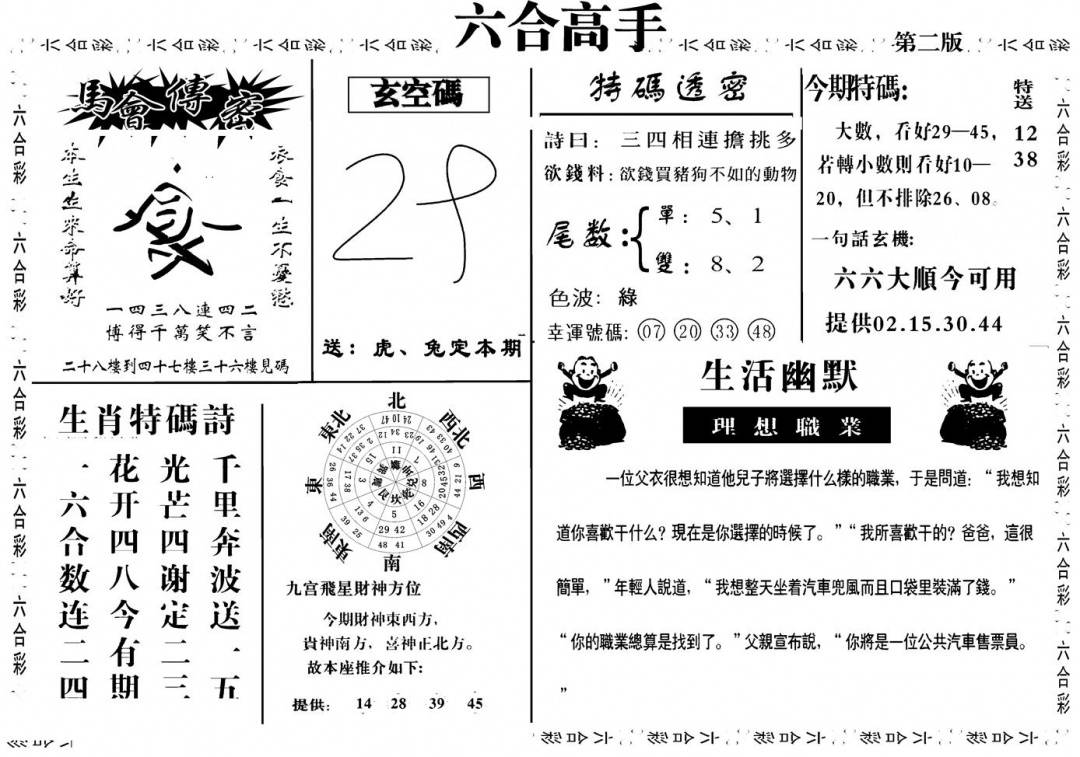 六合高手
第二版
馬會傳密
本生生來命算好
衣食一生不憂愁
一四三八連四二
博得千萬笑不言
二十八樓到四十七樓三十六樓見碼
玄空碼
29
送：虎、兔定本期
特碼透密
詩曰：三四相連擔挑多
欲錢料：欲錢買豬狗不如的動物
尾数：
單：5、1
雙：8、2
色波：綠
幸運號碼：07 20 33 48
今期特碼:
特送
12
38
大數，看好29—45，
若轉小數則看好10—
20，但不排除26、08。
一句話玄機:
六六大順今可用
提供02.15.30.44
生肖特碼詩
千里奔波送一五
光芒四谢定二三
花开四八今有期
一六合数连二四
北
西北
西
西南
南
東南
東
東北
九宫飛星財神方位
今期財神東西方，
貴神南方，喜神正北方。
故本座推介如下:
提供: 14 28 39 45
生活幽默
理想職業
一位父衣很想知道他兒子將選擇什么樣的職業，于是問道：“我想知
道你喜歡干什么？現在是你選擇的時候了。”“我所喜歡干的？爸爸，這很
簡單，”年輕人說道，“我想整天坐着汽車兜風而且口袋里裝滿了錢。”
“你的職業總算是找到了。”父親宣布說，“你將是一位公共汽車售票員。
”
六合彩 六合彩 六合彩 六合彩 六合彩
六合彩 六合彩 六合彩 六合彩 六合彩